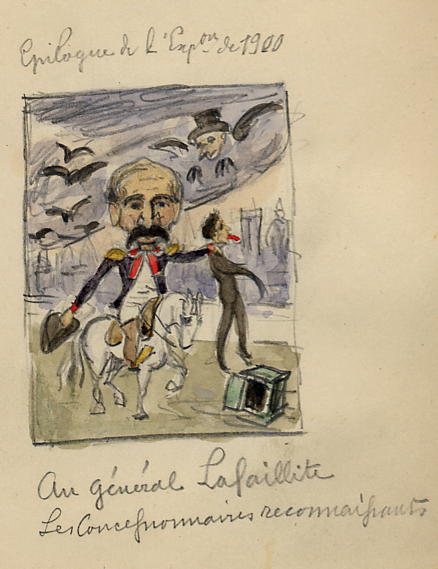 Epilogue de l'Expon de 1900
Au général Lafaillite
Les Concessionnaires reconnaissants